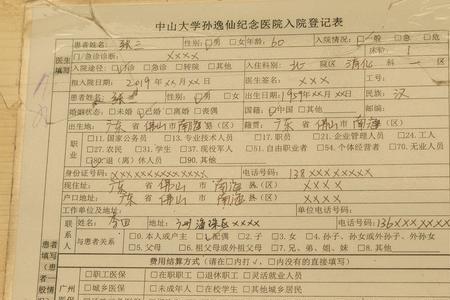 中山大学孙逸仙纪念医院入院登记表
医生填写
患者姓名: 张三 性别: □男 □女 年龄: 60 入院情况: □一般 □急 □危
□急诊诊断: XXXX 床位: 1
入院途径: □门诊 □急诊 □转院 □其他 入住科室: 北 院区 消化 科 一 区
拟入院日期: 2019年XX月XX日 医生签名: XXX 工号:
患者姓名: 张三 性别: □男 □女 出生日期: 1959年XX月XX日 民族: 汉
婚姻状态: □未婚 □已婚 □离婚 □丧偶 国籍: □中国 □其他 邮编:
出生地: 广东 省 佛山 市 南海 县(区) 籍贯: 广东 省 佛山 市 南海
职业
□11. 国家公务员 □13. 专业技术人员 □17. 职员 □21. 企业管理人员 □24. 工人
□27. 农民 □31. 学生 □37. 现役军人 □51. 自由职业者 □54. 个体经营者 □70. 无业人员
□80. 退(离)休人员 □90. 其他
身份证号码: XXXXXXXXXXXXXX 电话号码: 138XXXXXXXX
现住址: 广东 省 佛山 市 南海 县(区) XXXX
户口地址: 广东 省 佛山 市 南海 县(区) XXXX
工作单位及地址: 单位电话号码:
联系人
姓名: 李四 地址: 广州海珠区XXXX 电话号码: 136XXXXX
与患者关系: □0. 本人或户主 □1. 配偶 □2. 子 □3. 女 □4. 孙子、孙女或外孙子、外孙女
□5. 父母 □6. 祖父母或外祖父母 □7. 兄、弟、姐、妹 □8. 其他
患者填写
费用结算方式(请在□内打√,□内没有的直接填写)
广州医保
□职工医保 □在职职工 □退休职工 □灵活就业人员
□城乡医保 □未成年人 □在校学生 □其他城乡居民